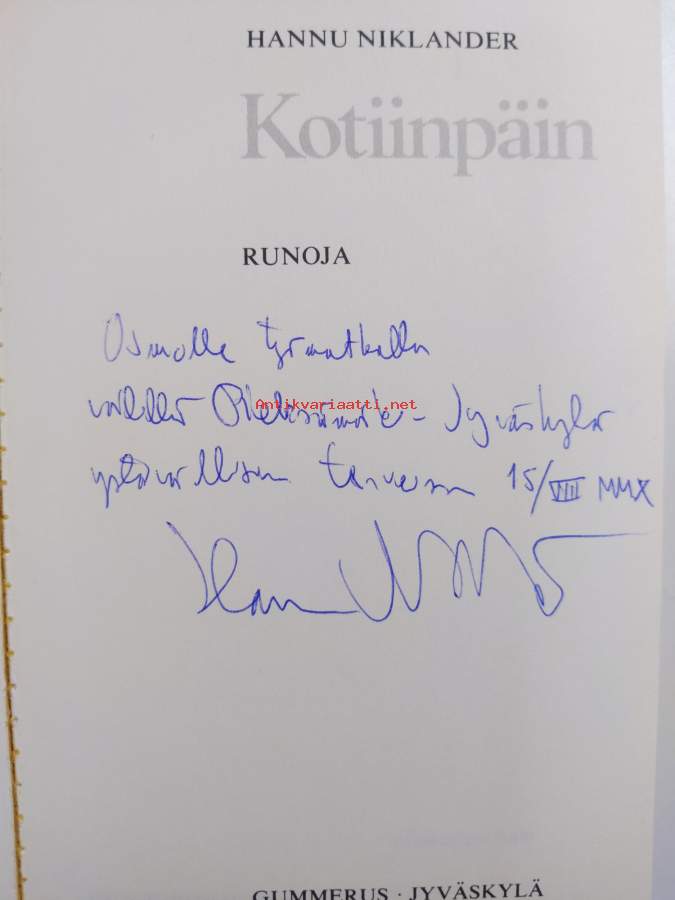 HANNU NIKLANDER
Kotiinpäin
RUNOJA
Osmolle työmatkalla
välillä Pieksämäki - Jyväskylä
Antikvariaatti.net
ystävällisin terveisin 15/VIII MMX
GUMMERUS · JYVÄSKYLÄ